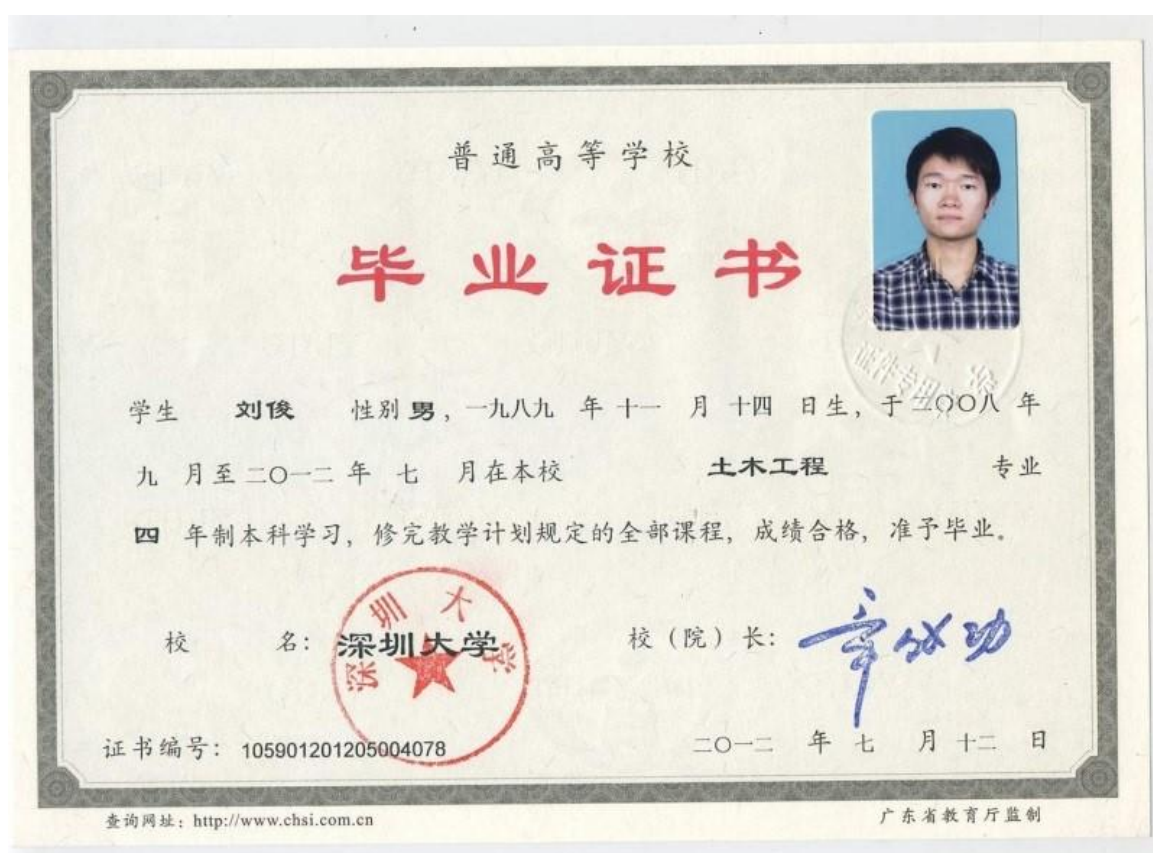 普通高等学校
毕业证书
学生 刘俊 性别 男，一九八九 年 十一 月 十四 日生，于 二〇〇八 年
九 月至 二〇一二 年 七 月在本校 土木工程 专业
四 年制本科学习，修完教学计划规定的全部课程，成绩合格，准予毕业。
校 名：深圳大学 校（院）长：章必功
深圳大学
证件专用章
证书编号：105901201205004078 二〇一二 年 七 月 十二 日
查询网址：http://www.chsi.com.cn 广东省教育厅监制